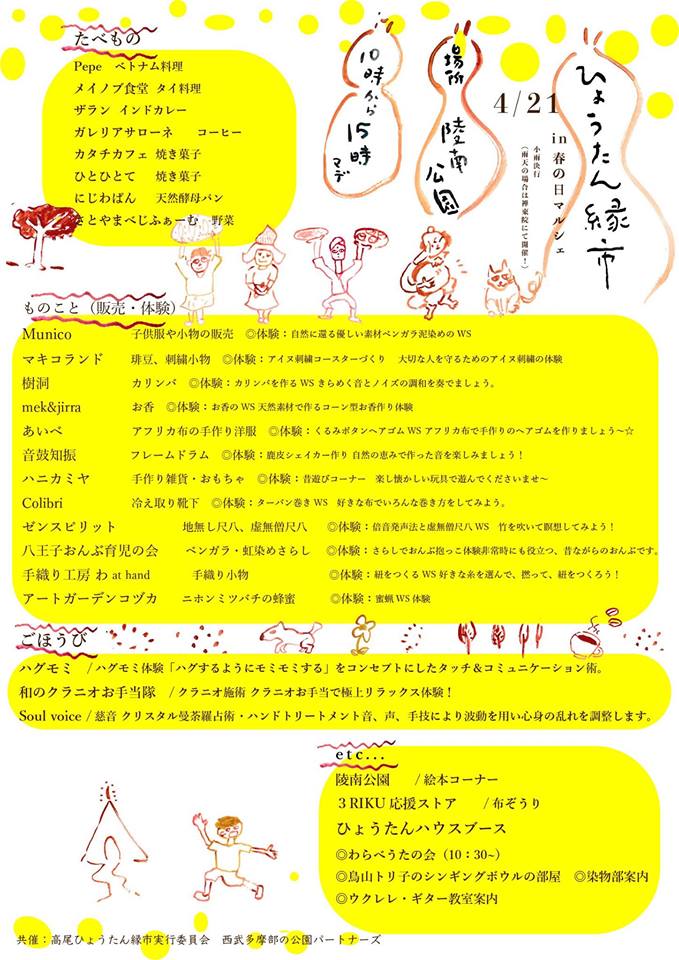 ひょうたん縁市
4/21 in 春の日マルシェ
小雨決行
（雨天の場合は禅東院にて開催！）
場所 陵南公園
10時から15時マデ
たべもの
Pepe ベトナム料理
メイノブ食堂 タイ料理
ザラン インドカレー
ガレリアサローネ コーヒー
カタチカフェ 焼き菓子
ひとひとて 焼き菓子
にじわぱん 天然酵母パン
さとやまべじふぁーむ 野菜
ものこと（販売・体験）
Munico 子供服や小物の販売 ◎体験：自然に還る優しい素材ベンガラ泥染めのWS
マキコランド 琲豆、刺繍小物 ◎体験：アイヌ刺繍コースターづくり 大切な人を守るためのアイヌ刺繍の体験
樹洞 カリンバ ◎体験：カリンバを作るWS きらめく音とノイズの調和を奏でましょう。
mek&jirra お香 ◎体験：お香のWS 天然素材で作るコーン型お香作り体験
あいべ アフリカ布の手作り洋服 ◎体験：くるみボタンヘアゴムWS アフリカ布で手作りのヘアゴムを作りましょう～☆
音鼓知振 フレームドラム ◎体験：鹿皮シェイカー作り 自然の恵みで作った音を楽しみましょう！
ハニカミヤ 手作り雑貨・おもちゃ ◎体験：昔遊びコーナー 楽し懐かしい玩具で遊んでくださいませ～
Colibri 冷え取り靴下 ◎体験：ターバン巻きWS 好きな布でいろんな巻き方をしてみよう。
ゼンスピリット 地無し尺八、虚無僧尺八 ◎体験：倍音発声法と虚無僧尺八WS 竹を吹いて瞑想してみよう！
八王子おんぶ育児の会 ベンガラ・虹染めさらし ◎体験：さらしでおんぶ抱っこ体験非常時にも役立つ、昔ながらのおんぶです。
手織り工房 わ at hand 手織り小物 ◎体験：紐をつくるWS 好きな糸を選んで、撚って、紐をつくろう！
アートガーデンコヅカ ニホンミツバチの蜂蜜 ◎体験：蜜蝋WS体験
ごほうび
ハグモミ /ハグモミ体験「ハグするようにモミモミする」をコンセプトにしたタッチ＆コミュニケーション術。
和のクラニオお手当隊 /クラニオ施術 クラニオお手当で極上リラックス体験！
Soul voice /慈音 クリスタル曼荼羅占術・ハンドトリートメント音、声、手技により波動を用い心身の乱れを調整します。
etc...
陵南公園 /絵本コーナー
３RIKU応援ストア /布ぞうり
ひょうたんハウスブース
◎わらべうたの会（10：30~）
◎鳥山トリ子のシンギングボウルの部屋 ◎染物部案内
◎ウクレレ・ギター教室案内
共催：高尾ひょうたん縁市実行委員会 西武多摩部の公園パートナーズ